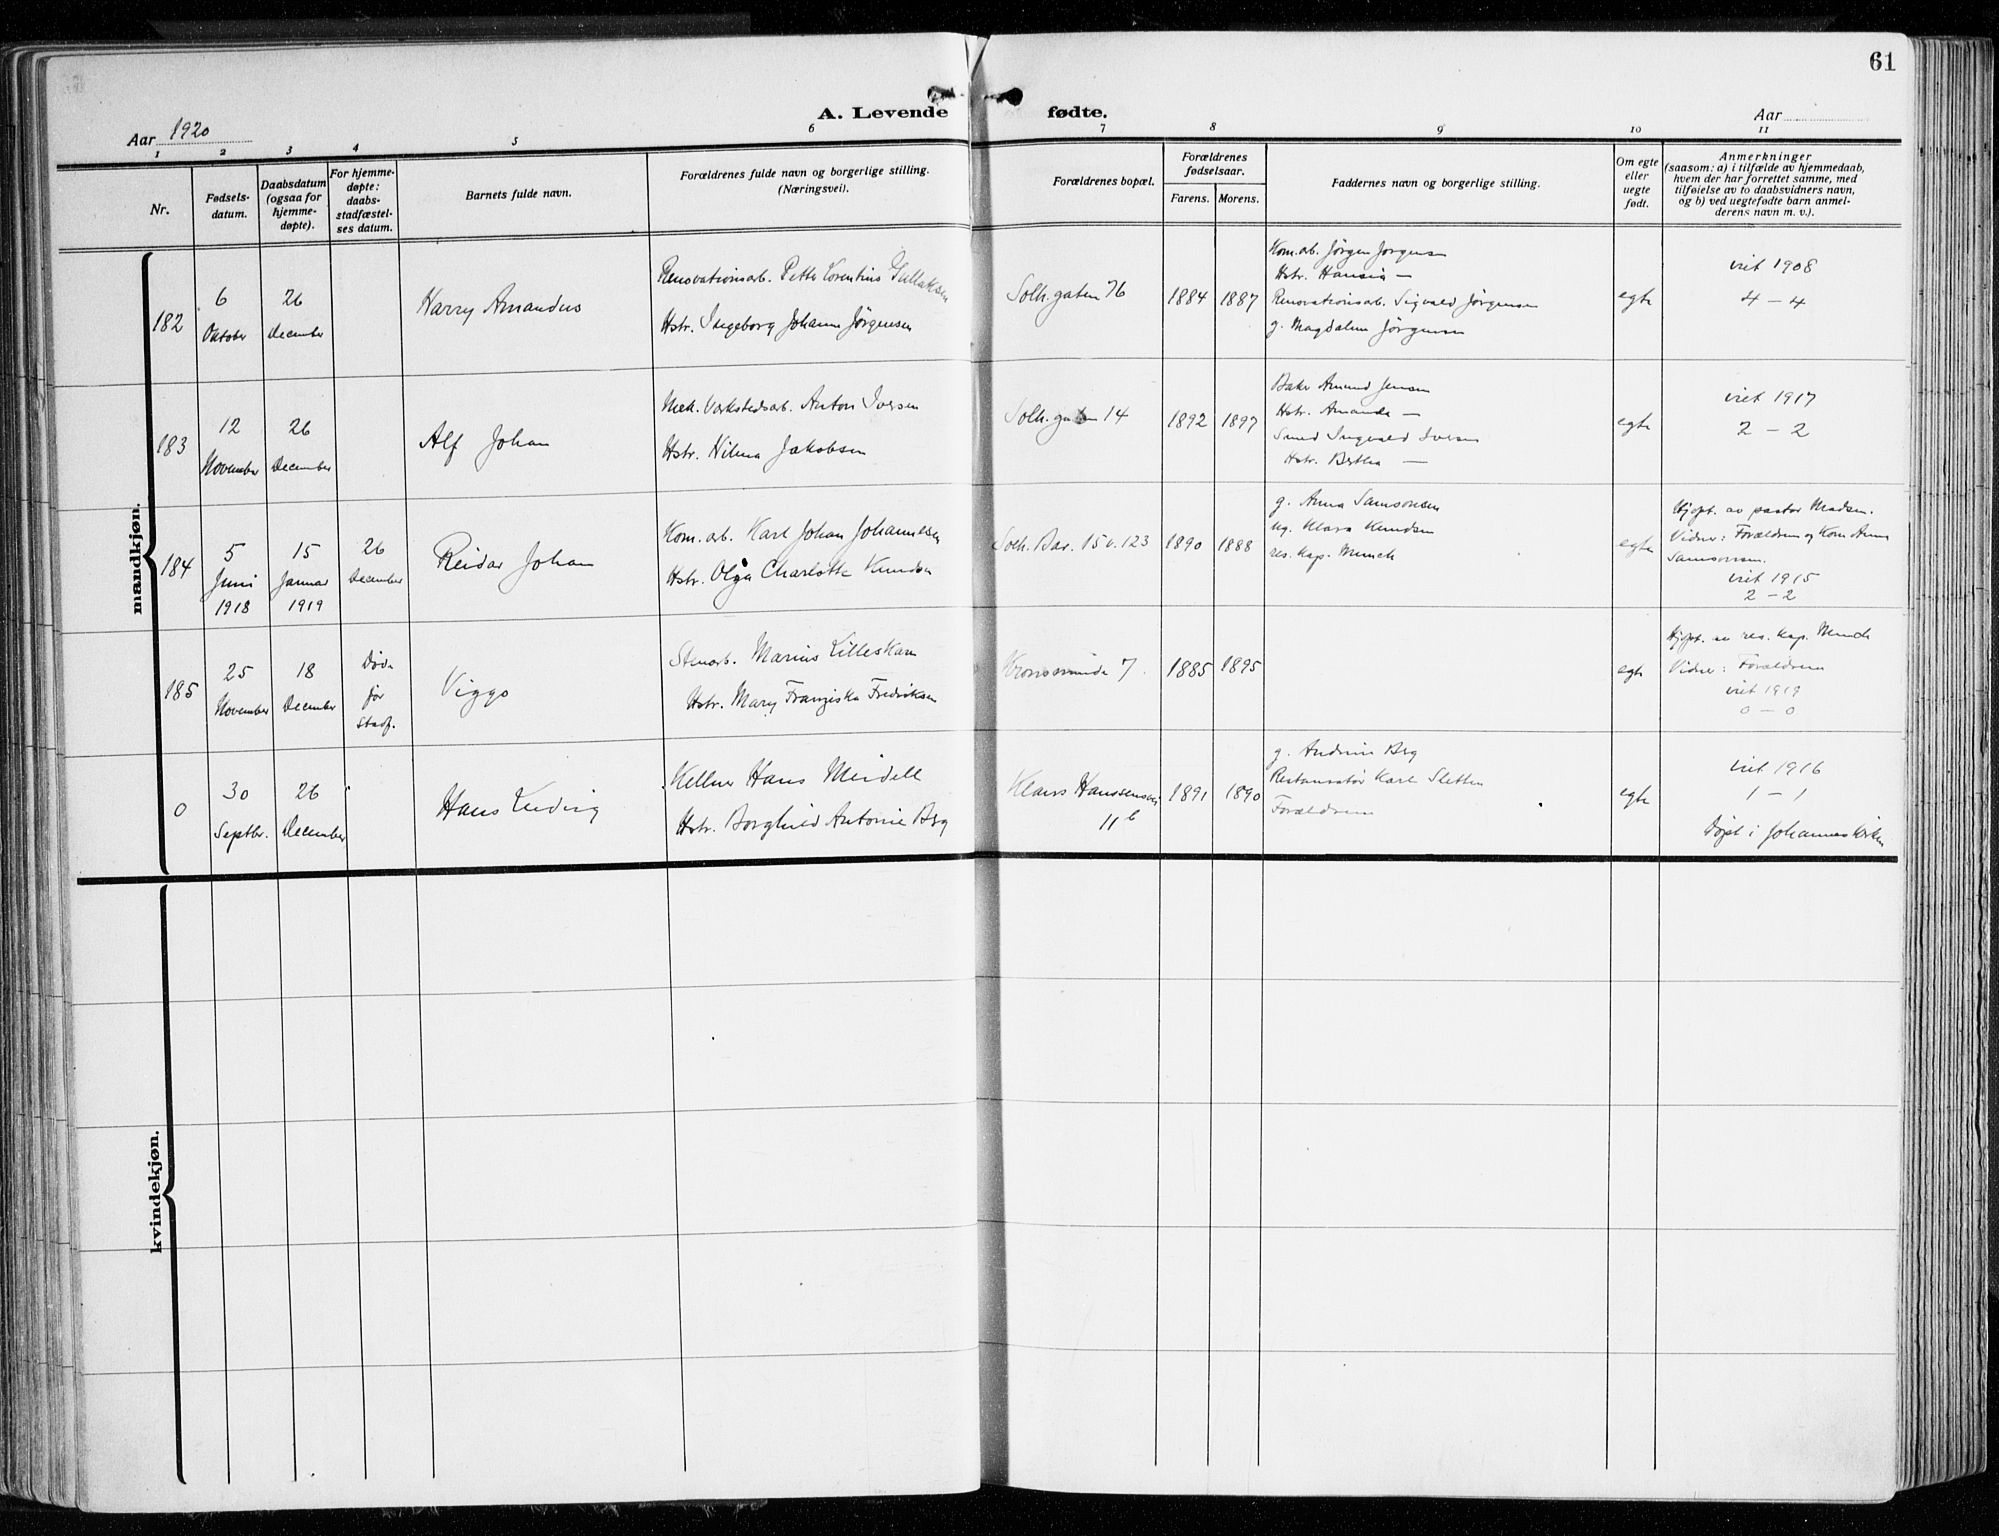 61
A. Levende fødte.
Aar 1920
Aar
1 2 3 4 5 6 7 8 9 10 11
Nr.
Fødsels-
datum.
Daabsdatum
(ogsaa for
hjemme-
døpte).
For hjemme-
døpte:
daabs-
stadfæstel-
ses datum.
Barnets fulde navn.
Forældrenes fulde navn og borgerlige stilling.
(Næringsvei).
Forældrenes bopæl.
Forældrenes
fødselsaar.
Farens. Morens.
Faddernes navn og borgerlige stilling.
Om egte
eller
uegte
født.
Anmerkninger
(saasom: a) i tilfælde av hjemmedaab,
hvem der har forrettet samme, med
tilføielse av to daabsvidners navn,
og b) ved uegtefødte barn anmel-
derens navn m. v.).
mandkjøn.
182
6
Oktober
26
December
Harry Amandus
Renovationsarb. Petter Lorentius Gullaksen
Hstr. Ingeborg Johanne Jørgensen
Solh.gaten 76
1884 1887
Kom.arb. Jørgen Jørgensen
Hstr. Hansina —
Renovationsarb. Sigvald Jørgensen
g. Magdalene Jørgensen
egte
viet 1908
4 – 4
183
12
November
26
December
Alf Johan
Mek. Verkstedsarb. Anton Iversen
Hstr. Vilma Jakobsen
Solh.gaten 14
1892 1897
Baker Amund Jensen
Hstr. Amanda —
Smed Ingvald Iversen
Hstr. Bertha —
egte
viet 1917
2 – 2
184
5
Juni
1918
15
Januar
1919
26
December
Reidar Johan
Kom. arb. Karl Johan Johannesen
Hstr. Olga Charlotte Knudsen
Solh. Bar. 15 v. 123
1890 1888
g. Anna Samsonsen
ug. Klara Knudsen
res. kap. Munch
egte
Hjdpt. av pastor Madsen.
Vidner: Forældrene og Kone Anna
Samsonsen.
viet 1915
2 – 2
185
25
November
18
December
Døde
før
Stadf.
Viggo
Stenarb. Marius Lilleskare
Hstr. Mary Franziska Fredriksen
Kronsminde 7
1885 1895
egte
Hjdpt. av res. kap. Munch
Vidner: Forældrene
viet 1919
0 – 0
0
30
Septbr.
26
December
Hans Ludvig
Kellner Hans Meidell
Hstr. Borghild Antonie Berg
Klaus Hanssensvei
11 b
1891 1890
g. Andrine Berg
Restauratør Karl Sletten
Forældrene
egte
viet 1916
1 – 1
Døpt i Johanneskirken
kvindekjøn.